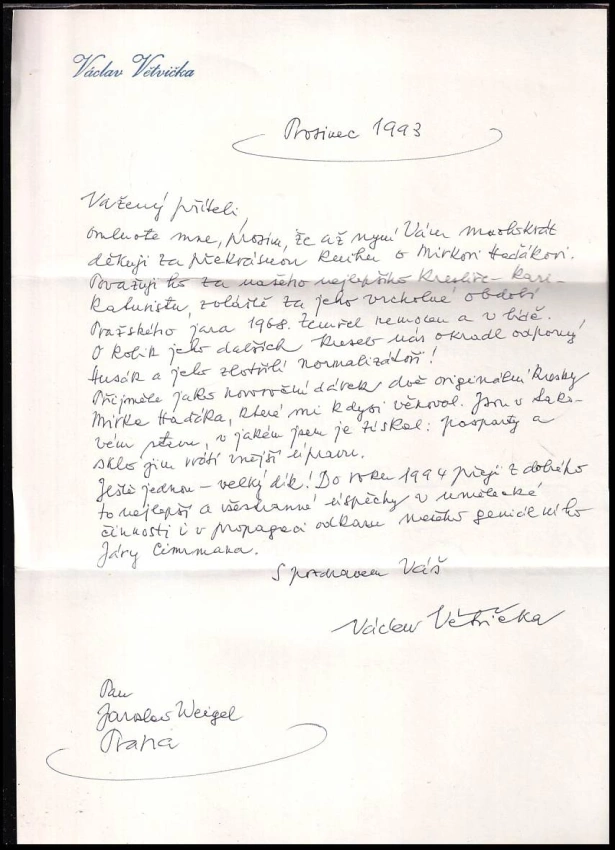 Václav Větvička
Prosinec 1993
Vážený příteli,
omluvte mne, prosím, že až nyní Vám mnohokrát
děkuji za překrásnou knihu o Mirkovi Haďákovi.
Považuji ho za našeho nejlepšího kreslíře - kari-
katuristu, zvláště za jeho vrcholné období
Pražského jara 1968. Zemřel nemocen a v bídě.
O kolik jeho dalších kreseb nás okradl odporný
Husák a jeho zlotřilí normalizátoři!
Přijměte jako novoroční dárek dvě originální kresby
Mirka Haďáka, které mi kdysi věnoval. Jsou v tako-
vém stavu, v jakém jsem je získal: pasparty a
sklo jim vrátí vnější úpravu.
Ještě jednou - velký dík! Do roku 1994 přeji z dobrého
to nejlepší a všestranné úspěchy v umělecké
činnosti i v propagaci odkazu našeho geniálního
Járy Cimrmana.
S pozdravem Váš
Václav Větvička
Pan
Jaroslav Weigel
Praha